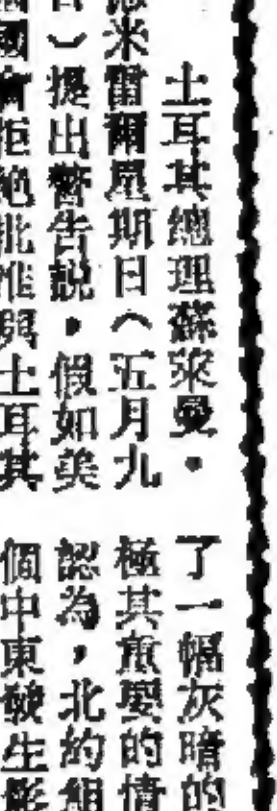 土耳其總理蘇萊曼・
米雷爾星期日（五月九
）提出警告説，假如美
國會拒絕批准與土耳其
了一幅灰暗的
極其重要的情
認為，北約組
個中東發生影